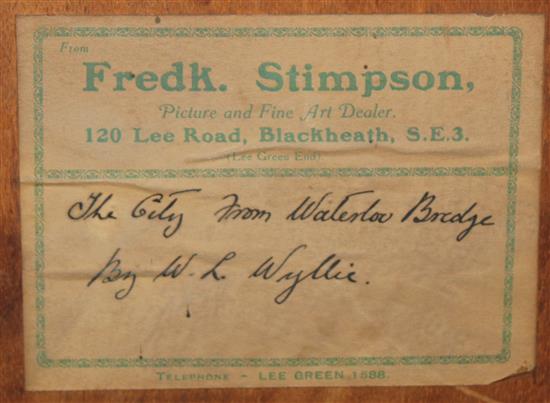 From
Fredk. Stimpson,
Picture and Fine Art Dealer.
120 Lee Road, Blackheath, S.E.3.
(Lee Green End)
The City From Waterloo Bredge
By W. L. Wyllie.
TELEPHONE - LEE GREEN 1588.